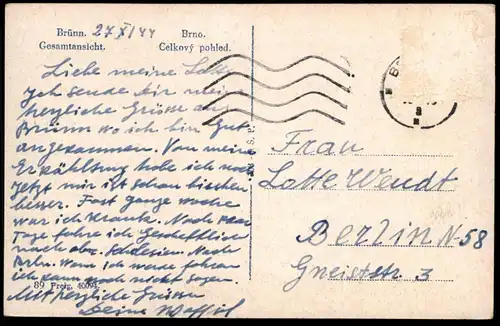 Brünn. 27/XI/44 Brno.
Gesamtansicht. Celkový pohled.
Liebe meine Lotte
Ich sende dir meine
herzliche Grüsse aus
Brünn wo ich bin Gut
angekommen. Von meine
Erkähltung habe ich noch
Jetzt mir ist schon bischen
besser. Fast ganze woche
war ich Krank. Noch paar
Tage fahre ich Geschäftlich
nach obr. Schlesien. Nach
Brln. Wann ich werde fahren
ich kann noch nicht sagen.
Mit herzliche Grüssen
Deine
89 Freig. 40093
Frau
Lotte Wendt
Berlin N-58
Gneiststr. 3